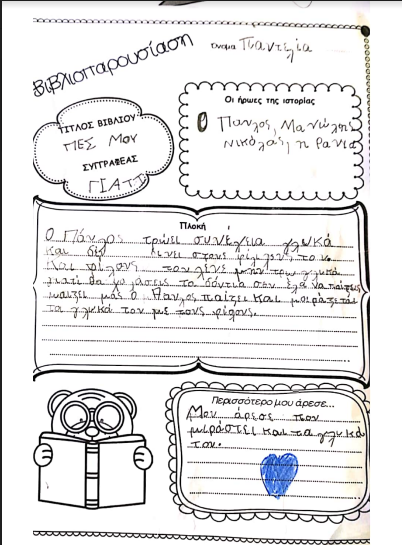 Βιβλιοπαρουσίαση
όνομα Παντελία
ΤΙΤΛΟΣ ΒΙΒΛΙΟΥ
ΠΕΣ Μου
ΣΥΓΓΡΑΦΕΑΣ
ΓΙΑΤΤ
Οι ήρωες της ιστορίας
Ο Παυλος, Μανώλης
Νικόλας, η Ρανια
Πλοκή
Ο Πάυλος τρώει συνέχεια γλυκά
και δεν δίνει στους φίλους του.
και φίλους του λένε μην τρως γλυκά
γιατί θα χαλάσεις τα δόντια σου έλα να παίξεις
μαζί μας ο Παυλος παίζει και μοιράζεται
τα γλυκά του με τους φίλους.
Περισσότερο μου άρεσε...
Μου άρεσε που
μιράστει και τα γλυκά
του.